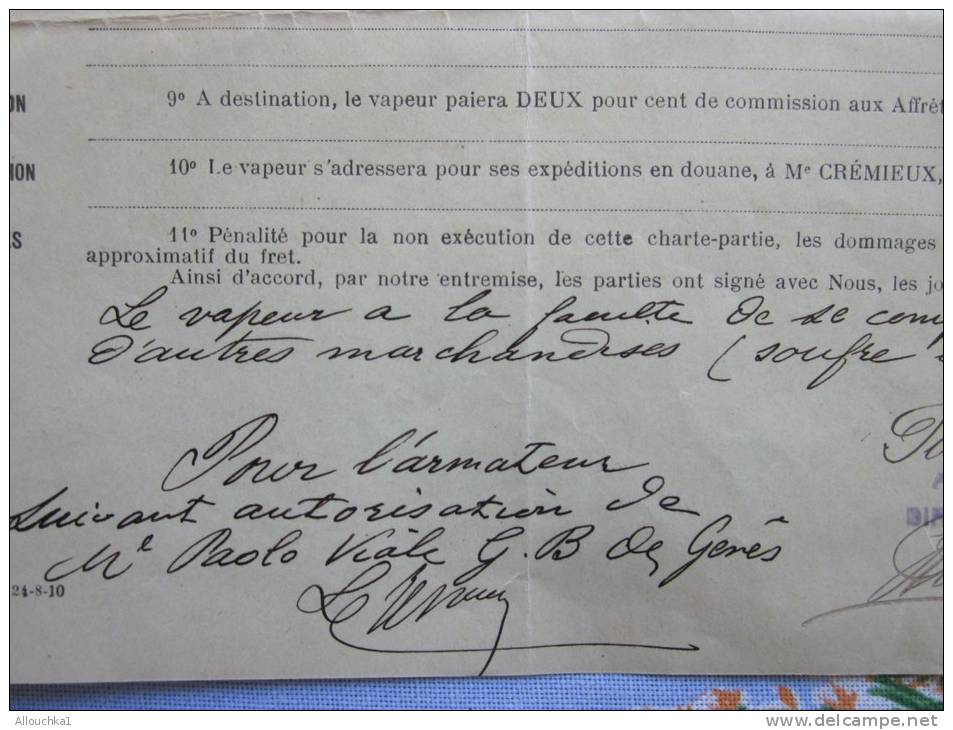 ON
9º A destination, le vapeur paiera DEUX pour cent de commission aux Affrét
ION
10º Le vapeur s'adressera pour ses expéditions en douane, à Me CRÉMIEUX,
S
11º Pénalité pour la non exécution de cette charte-partie, les dommages
approximatif du fret.
Ainsi d'accord, par notre entremise, les parties ont signé avec Nous, les jo
Le vapeur a la faculte de se comp
d'autres marchandises (soufre
Pour l'armateur
Suivant autorisation de
Mr Paolo Viale G. B de Gênes
24-8-10
Allouchka1
www.delcampe.net